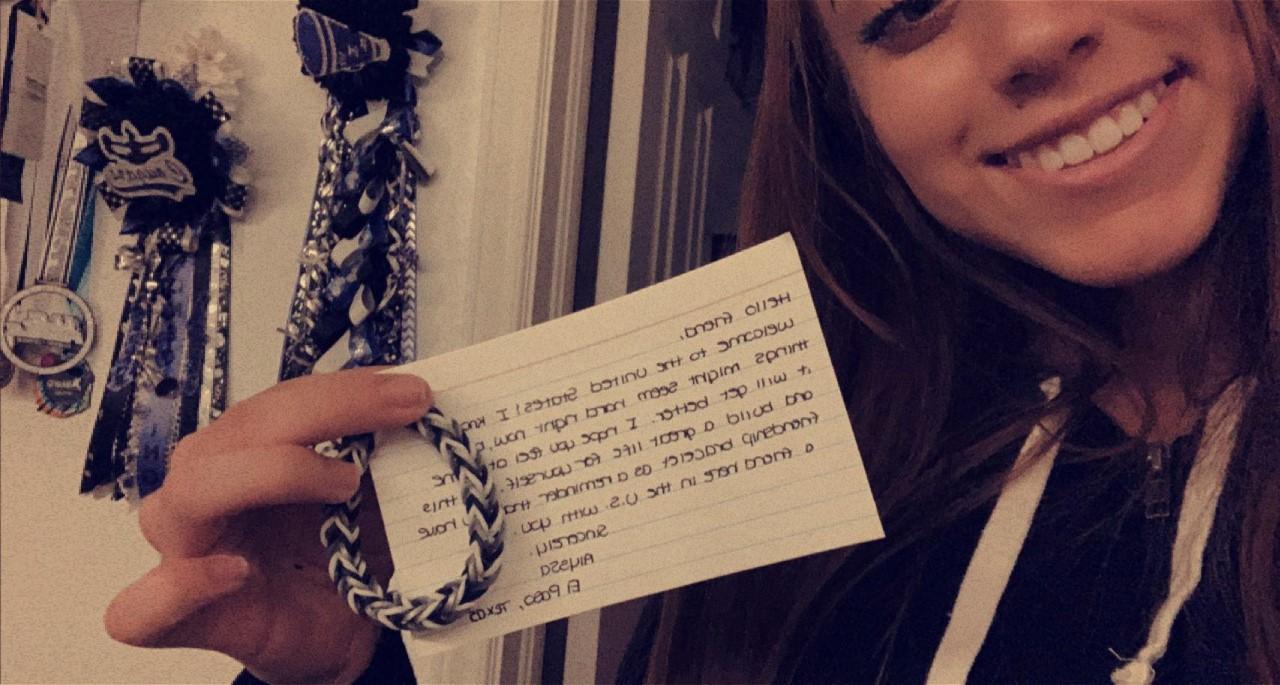 Hello friend,
welcome to the United States! I
things might seem hard right now,
it will get better. I hope you feel at
and build a great life for yourself. this
friendship bracelet as a reminder have
a friend here in the U.S. with you.
Sincerely,
Alyssa
El Paso, Texas